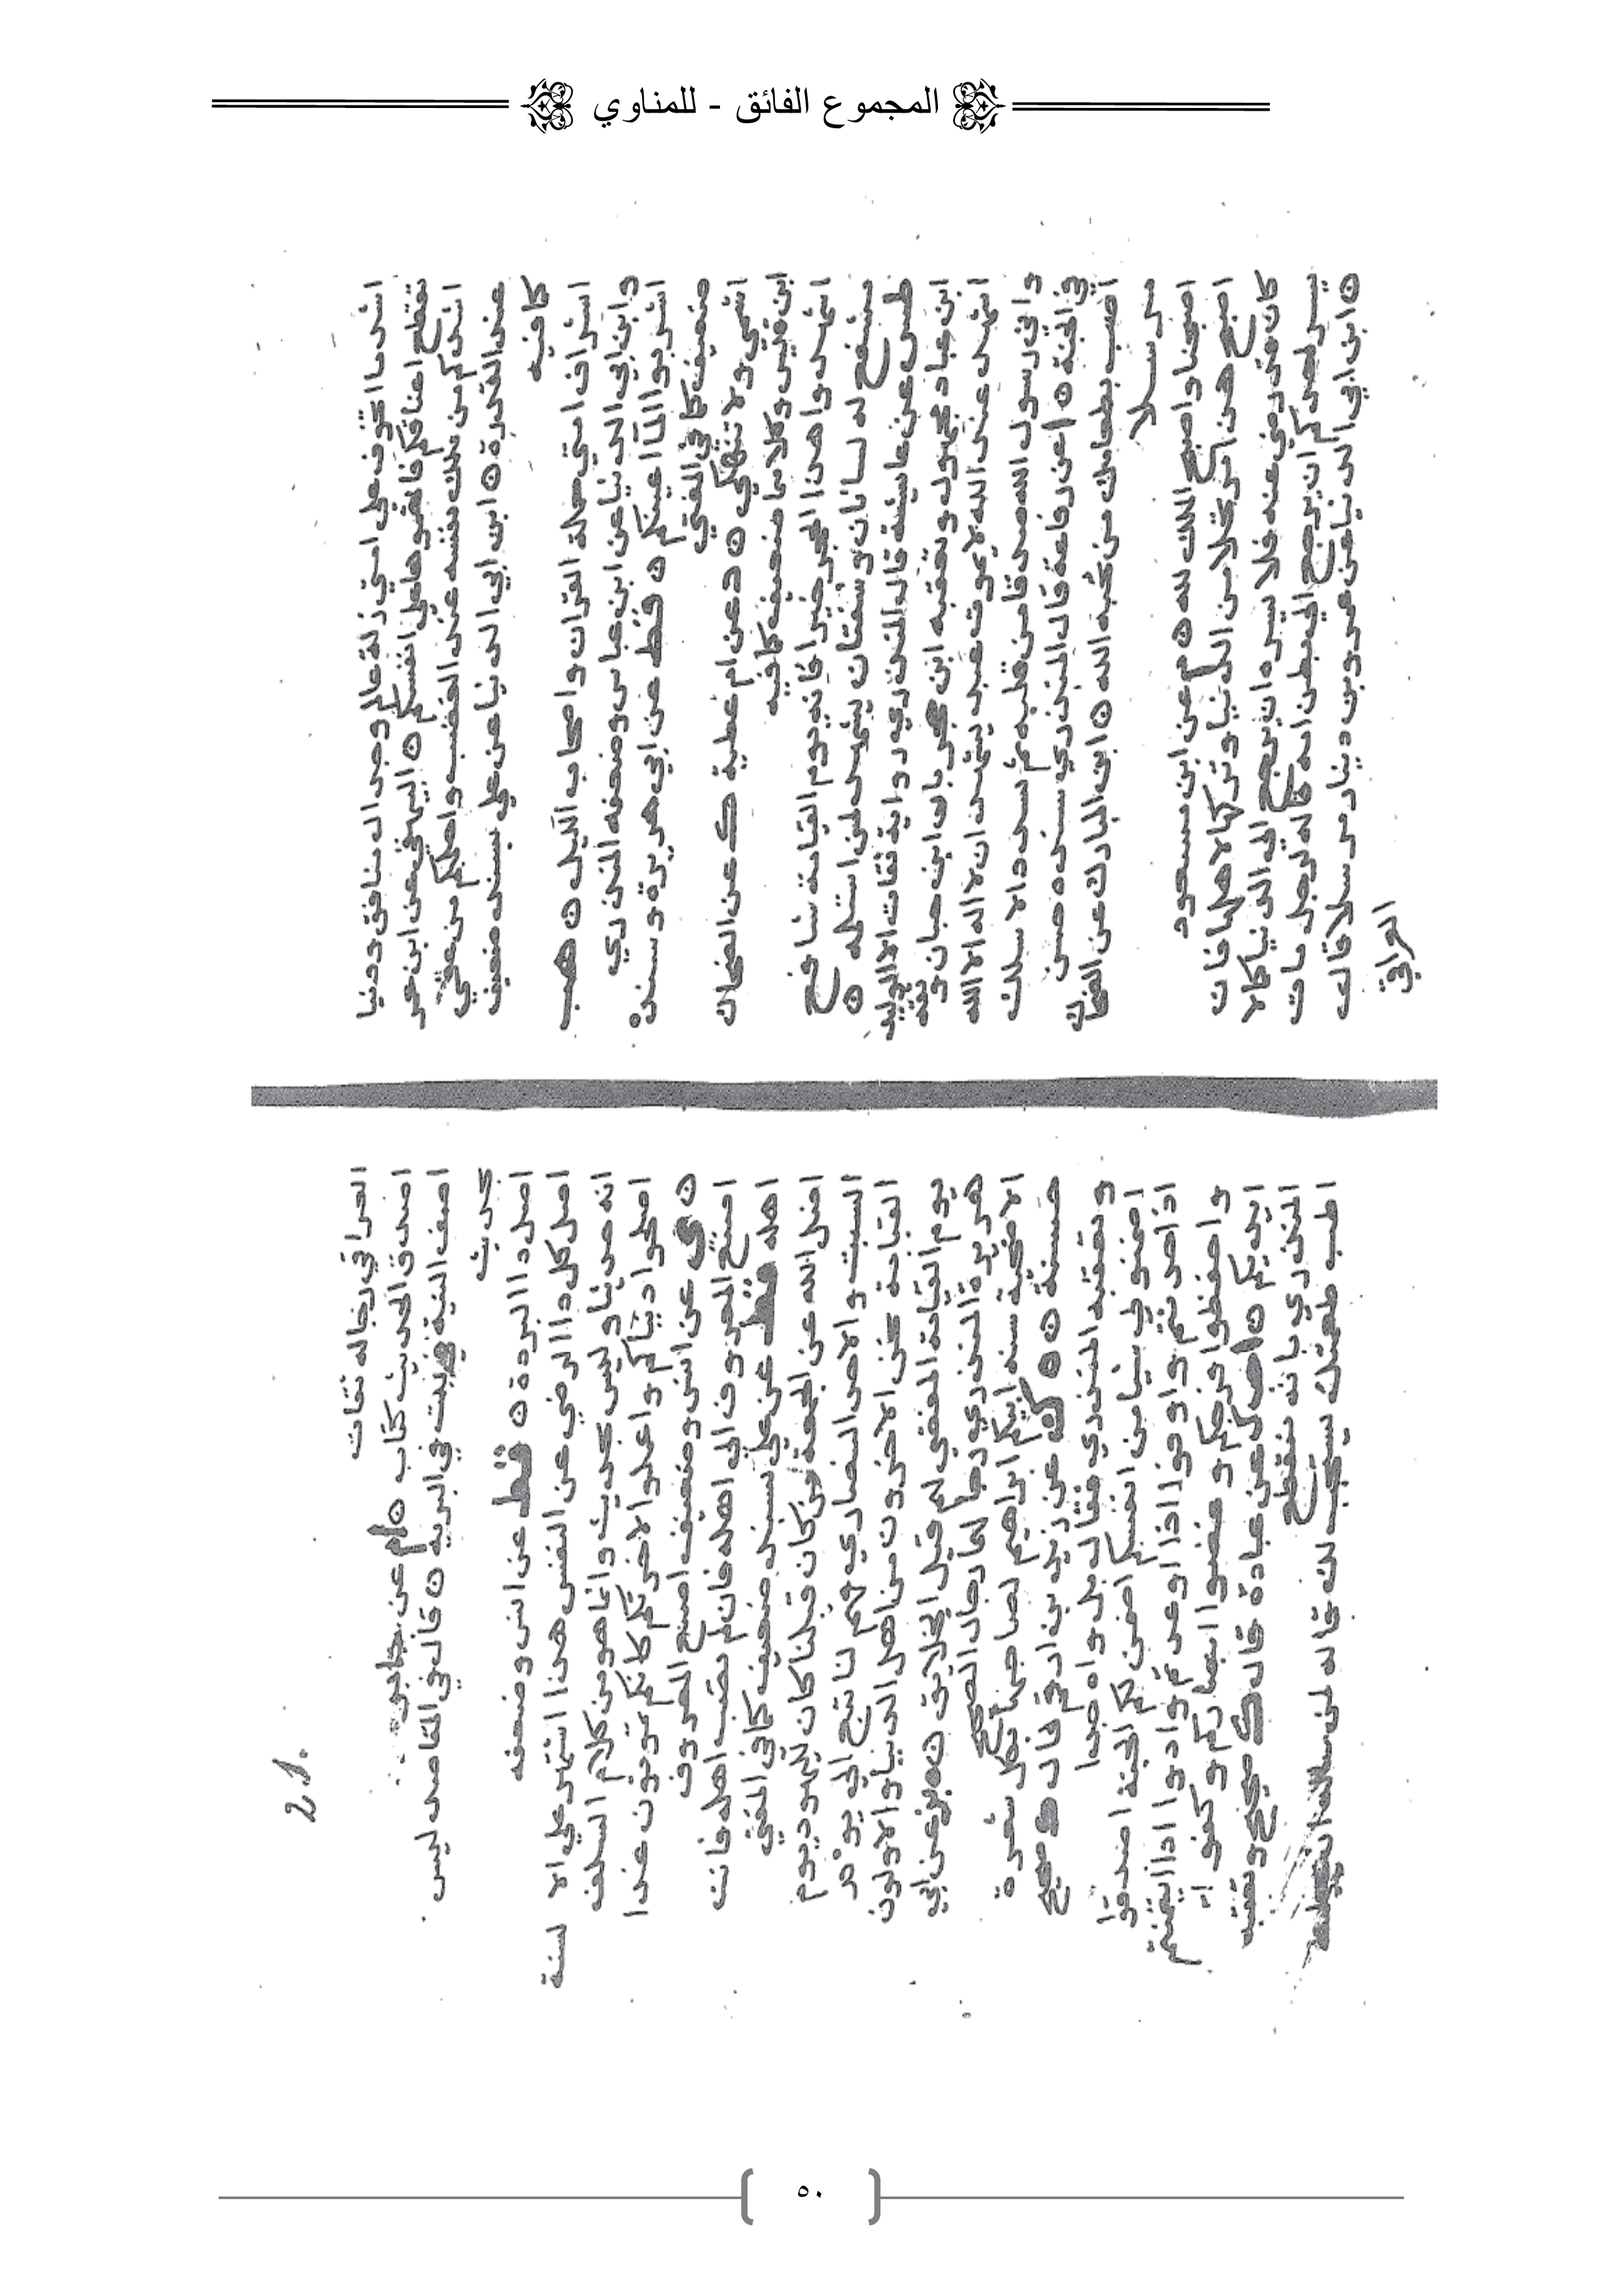 المجموع الفائق - للمناوي
اشد ما اتخوف على امتي زلة عالم وجدال منافق ودنيا
تقطع اعناقكم فاتهموها على انفسكم ه البيهقي عن ابن عمر
اشدكم من ملك نفسه عند الغضب واحلمكم من عفى
عند القدرة ه ابن ابي الدنيا عن علي بسند ضعيف
كما فيه
اشراف امتي حملة القران واصحاب الليل ه هب
وابن ابي الدنيا عن ابن عباس وضعفه المنذري
اشربوا الماء اعينكم ه قط عن ابي هريرة وسنده
ضعيف كما في المغني
اشمي ولا تنهكي ه د عن ام عطية ك عن الضحاك
ابن قيس وكلاهما ضعيف كما فيه
اشهدوا هذا الحجر خيرا فانه يوم القيامة شافع
مشفع له لسانان وشفتان يشهد لمن استلمه ه
طس عن عايشة قال المنذري رواته ثقات الا الوليد
ابن عباد مجهول وتعقبه ابن حجر بان ابن حبان وثقه
اشهد عند الله لا يموت عبد يشهد ان لا اله الا الله
واني رسول الله صدقا من قلبه ثم يسدد الا سلك
في الجنة ه عن رفاعة قال المنذري سنده حسن
اصب بطعامك من تحبه الله ه ابن المبارك عن الضحاك
مرسلا
اصبحنا واصبح الملك لله ه م عن ابن مسعود
اصبح هذا مرتحلا من الدنيا وتركها لاهلها فان
كان قد رضي عنه فلا يسره ان يرجع الى الدنيا كما لا
يسر احدكم ان يرجع الى بطن امه قاله لرجل مات
ه ابن ابي الدنيا عن عمرو بن دينار مرسلا قال
العراقي
العراقي رجاله ثقات
اصدق الحديث كتاب ه م عن جابر
اصف النية في البريه ه قال في المقاصد ليس
بحديث
اصل كل داء البردة ه قط عن انس وضعفه
اصل كل داء الرضى عن النفس هذا اشتهر على الالسنة
انه حديثا وليس بحديث وانما هو من كلام السلف
اصلحوا دنياكم واعملوا لاخرتكم كانكم تموتون غدا
ه عن انس وضعيف اصنع المعروف
اصنع المعروف الى اهله فان لم تصب اهله فانت
اهله قط عن علي بسند ضعيف كما في المغني
اضل الله عن الجمعة من كان قبلنا كان لليهود يوم
السبت والاحد للنصارى فهم لنا تبع الى يوم
القيامة نحن الاخرون من اهل الدنيا والاولون
يوم القيامة المقضي لهم قبل الخلايق ه بز عن ابي
هريرة المنذري رجاله رجال الصحيح
الاضحية سنة ابيكم ابراهيم لصاحبها بكل شعرة
حسنة ه ك عن زيد بن ارقم قال صحيح
وتعقبه المنذري فقال بل واه جدا
اضمنوا لي ستا من انفسكم اضمن لكم الجنة اصدقوا
اذا حدثتم واوفوا اذا وعدتم وادوا اذا ائتمنتم
واحفظوا فروجكم وغضوا ابصاركم وكفوا
ايديكم ه ك عن عبادة قال ك صحيح وتعقبه
المنذري بانه منقطع
٥٠